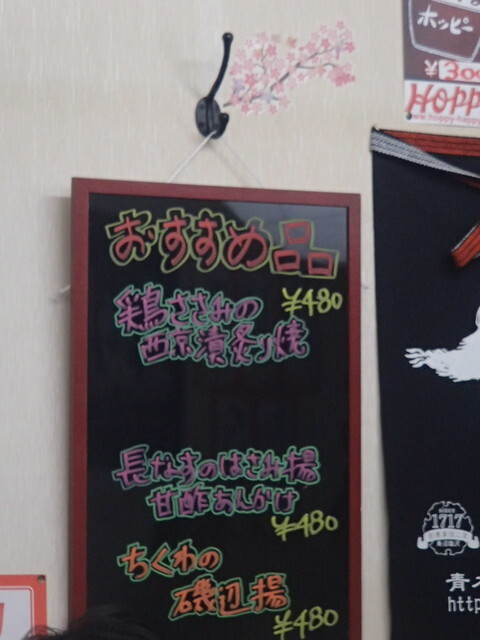 おすすめ品
鶏ささみの
¥480
西京漬炙り焼
長なすのはさみ揚
甘酢あんかけ
¥480
ちくわの
磯辺揚
¥480
ホッピー
¥300
HOPP
since
1717
青木
http